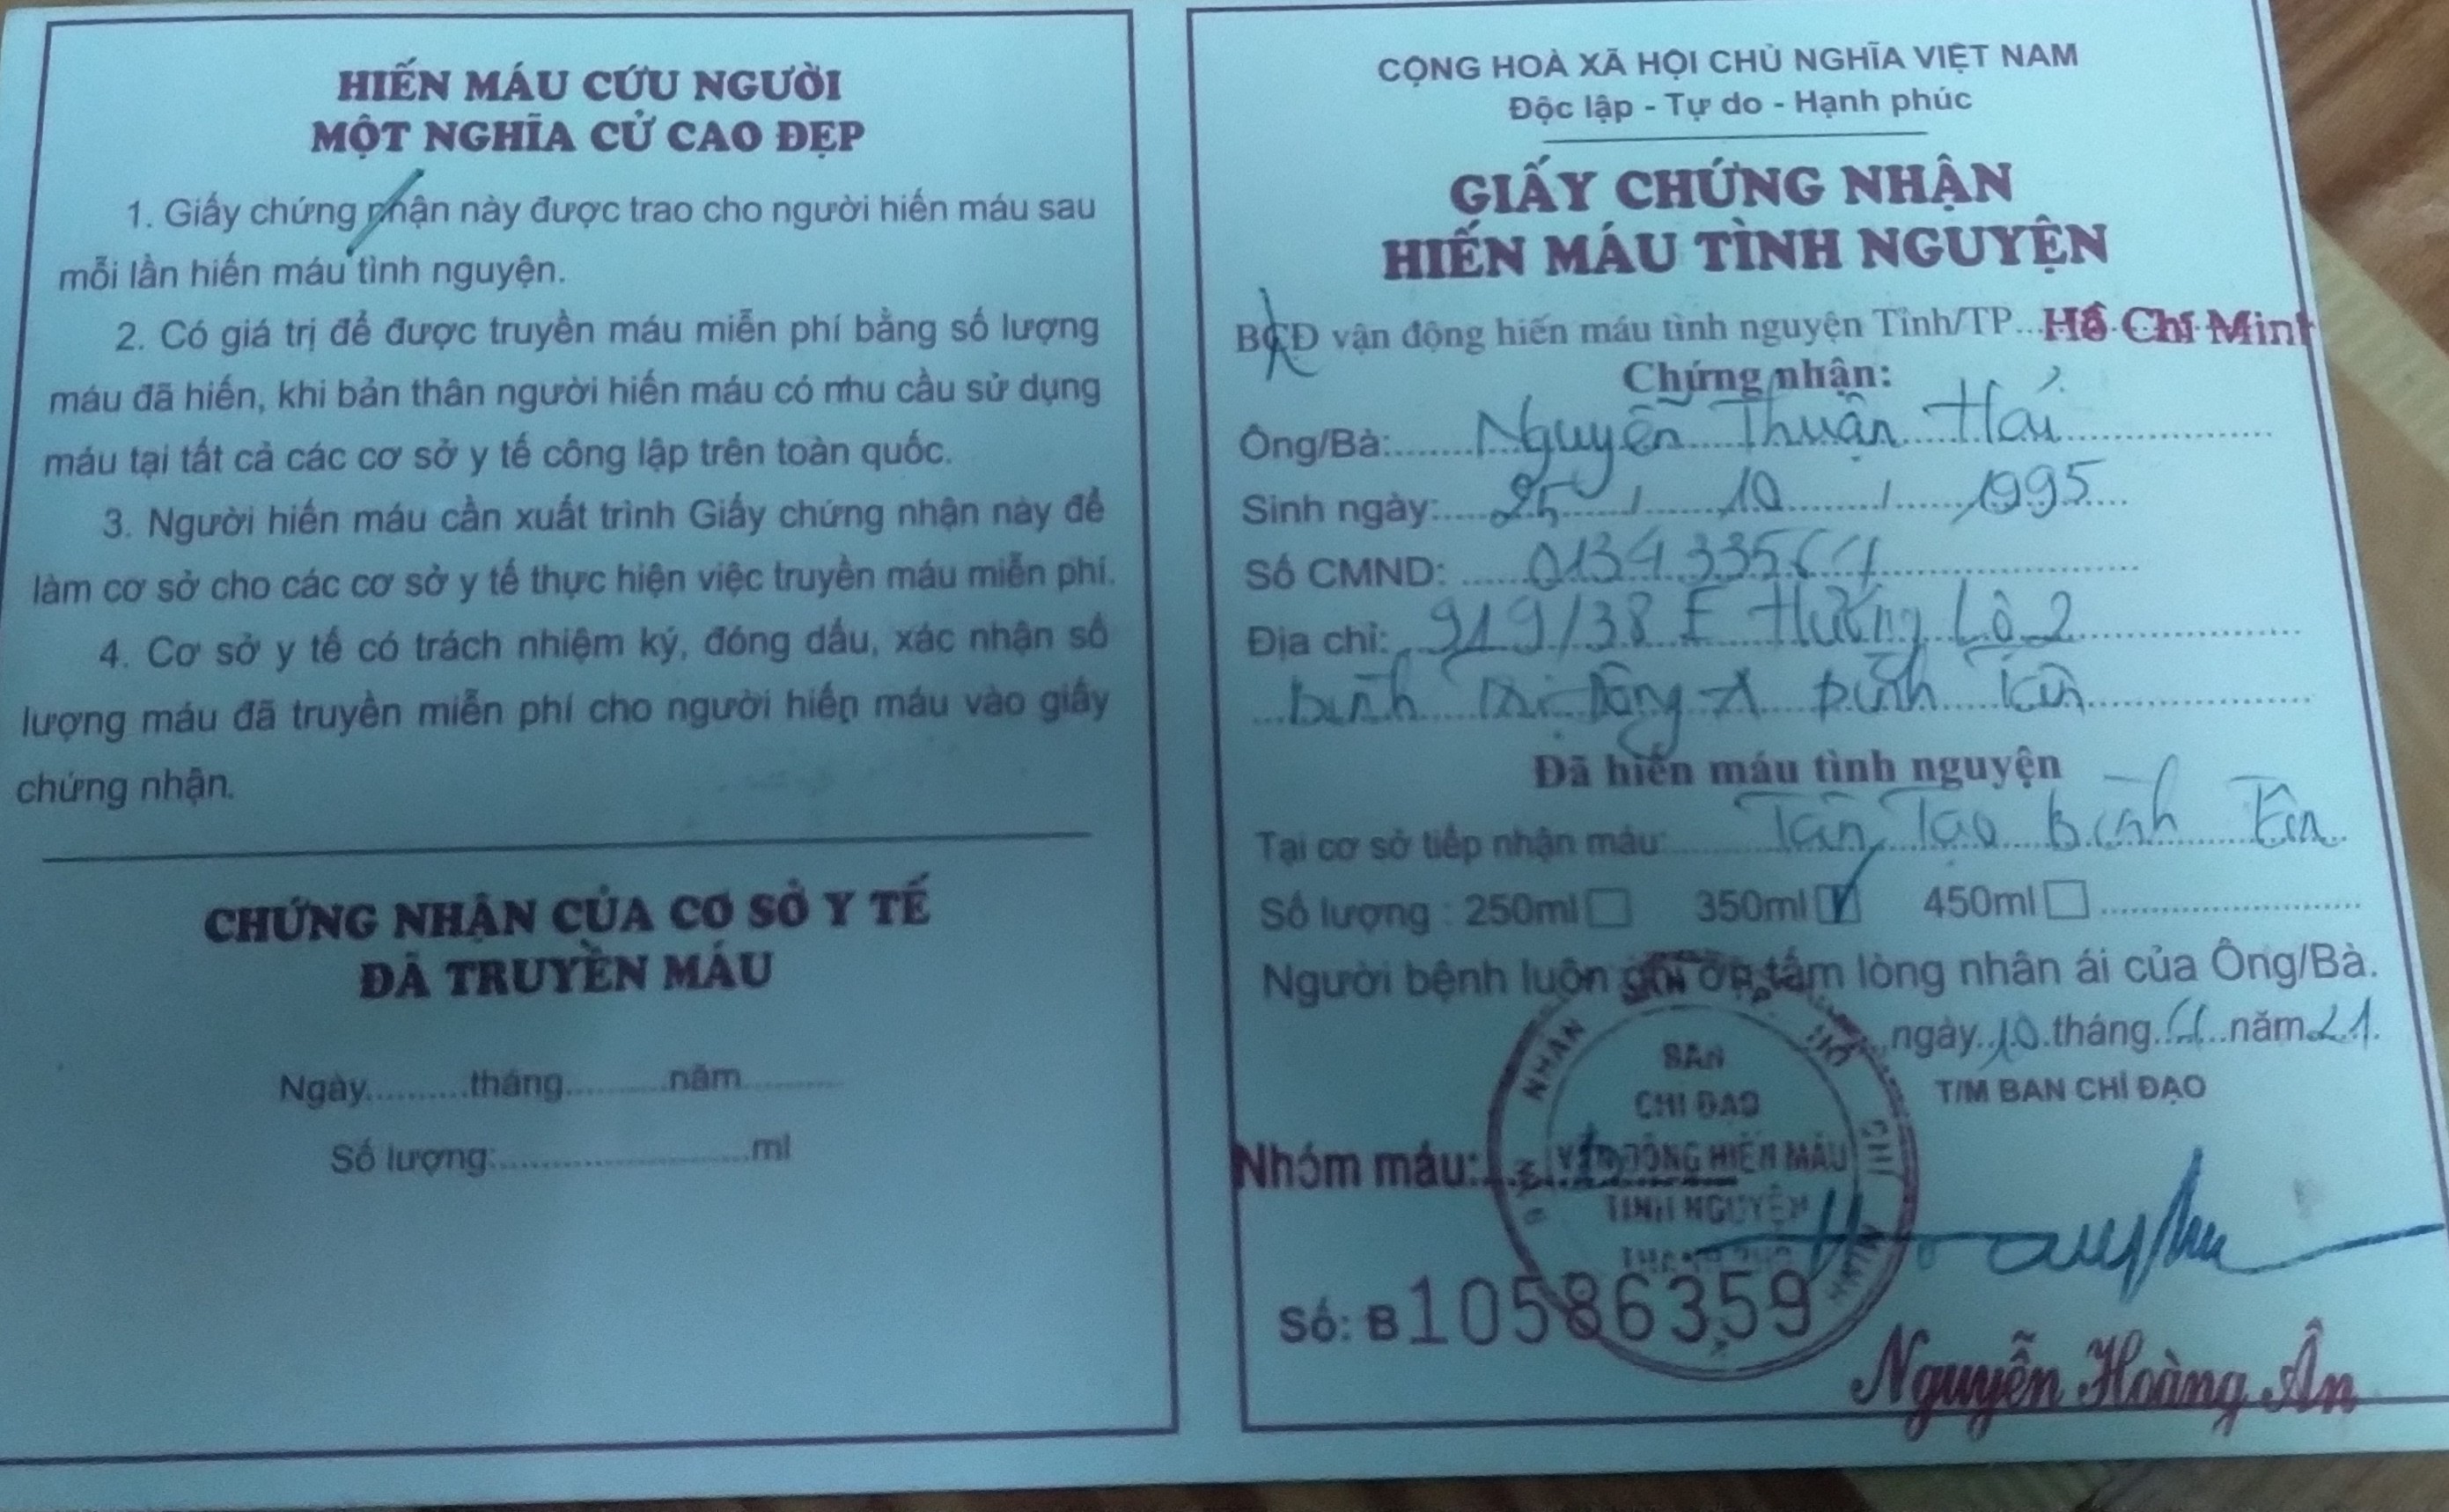 HIẾN MÁU CỨU NGƯỜI
MỘT NGHĨA CỬ CAO ĐẸP
1. Giấy chứng nhận này được trao cho người hiến máu sau
mỗi lần hiến máu tình nguyện.
2. Có giá trị để được truyền máu miễn phí bằng số lượng
máu đã hiến, khi bản thân người hiến máu có nhu cầu sử dụng
máu tại tất cả các cơ sở y tế công lập trên toàn quốc.
3. Người hiến máu cần xuất trình Giấy chứng nhận này để
làm cơ sở cho các cơ sở y tế thực hiện việc truyền máu miễn phí.
4. Cơ sở y tế có trách nhiệm ký, đóng dấu, xác nhận số
lượng máu đã truyền miễn phí cho người hiến máu vào giấy
chứng nhận.
CHỨNG NHẬN CỦA CƠ SỞ Y TẾ
ĐÃ TRUYỀN MÁU
Ngày..........tháng..........năm..........
Số lượng:..........ml
CỘNG HOÀ XÃ HỘI CHỦ NGHĨA VIỆT NAM
Độc lập - Tự do - Hạnh phúc
GIẤY CHỨNG NHẬN
HIẾN MÁU TÌNH NGUYỆN
BCĐ vận động hiến máu tình nguyện Tỉnh/TP...Hồ Chí Minh
Chứng nhận:
Ông/Bà: Nguyễn Thuận Hải
Sinh ngày: 25 / 10 / 1995
Số CMND:
Địa chỉ: 919/38 Hương Lộ 2
Bình Trị Đông A Bình Tân
Đã hiến máu tình nguyện
Tại cơ sở tiếp nhận máu: Tân Tạo Bình Tân
Số lượng : 250ml 350ml 450ml
Người bệnh luôn ghi ơn tấm lòng nhân ái của Ông/Bà.
ngày 10 tháng năm 21.
T/M BAN CHỈ ĐẠO
BAN
CHỈ ĐẠO
VẬN ĐỘNG HIẾN MÁU
TÌNH NGUYỆN
Nhóm máu:
Số: B 10586359
Nguyễn Hoàng Ân